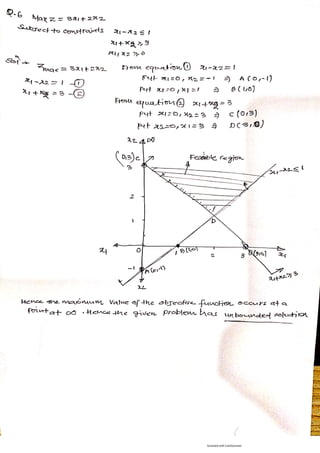 Q.6 Max Z = 3x1 + 2x2
Subject to constraints x1 - x2 ≤ 1
x1 + x2 ≥ 3
x1, x2 ≥ 0
Solⁿ → Zmax = 3x1 + 2x2
x1 - x2 = 1 —①
x1 + x2 = 3 —②
From equation ① x1 - x2 = 1
Put x1 = 0, x2 = -1 ⇒ A (0, -1)
Put x2 = 0, x1 = 1 ⇒ B (1,0)
From equation ② x1 + x2 = 3
Put x1 = 0, x2 = 3 ⇒ C (0,3)
Put x2 = 0, x1 = 3 ⇒ D (3,0)
x2
(0,3) C
3
Feasible region
x1 - x2 ≤ 1
2
1
D
x1 0 1 B(1,0) 2 3 x1
-1 A(0,-1)
x1 + x2 ≥ 3
x2
Hence the maximum value of the objective function occurs at a
point at ∞. Hence the given problem has unbounded solution
Scanned with CamScanner